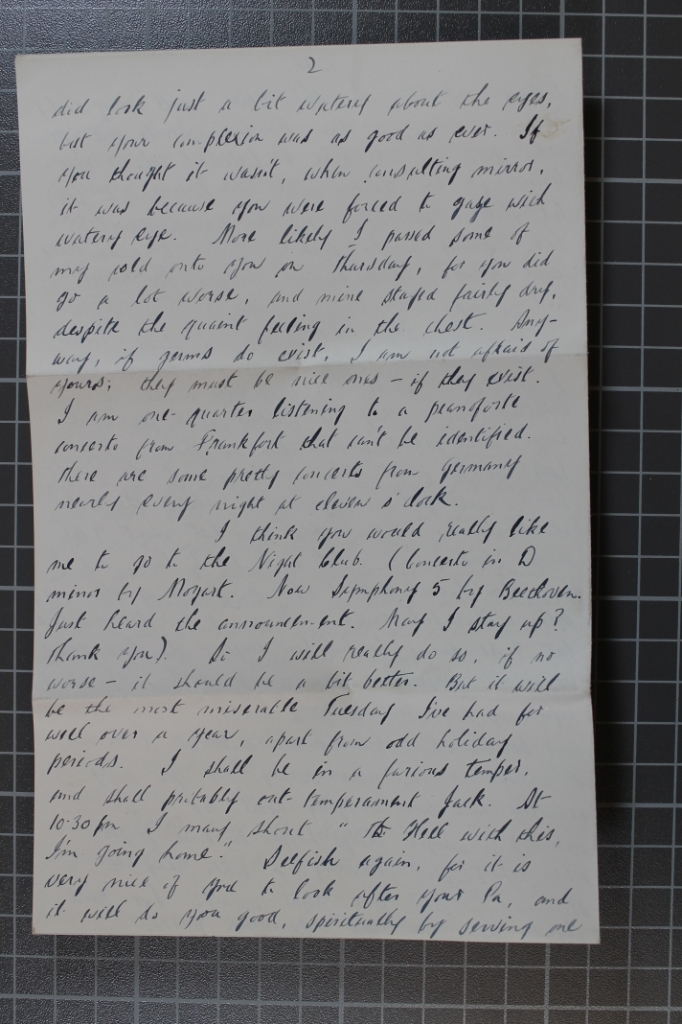 2
did look just a bit watery about the eyes,
but your complexion was as good as ever. If
you thought it wasn't, when consulting mirror,
it was because you were forced to gaze with
watery eye. More likely I passed some of
my cold onto you on Thursday, for you did
go a lot worse, and mine stayed fairly dry,
despite the quaint feeling in the chest. Any-
way, if germs do exist, I am not afraid of
yours; they must be nice ones – if they exist.
I am one-quarter listening to a pianoforte
concerto from Frankfort that can't be identified.
There are some pretty concerts from Germany
nearly every night at eleven o'clock.
I think you would really like
me to go to the Night Club. (Concerto in D
minor by Mozart. Now Symphony 5 by Beethoven.
Just heard the announcement. May I stay up?
Thank you). So I will really do so, if no
worse – it should be a bit better. But it will
be the most miserable Tuesday I've had for
well over a year, apart from odd holiday
periods. I shall be in a furious temper,
and shall probably out-temperament Jack. At
10.30 pm I may shout "To Hell with this,
I'm going home." Selfish again, for it is
very nice of you to look after your Pa, and
it will do you good, spiritually by serving me